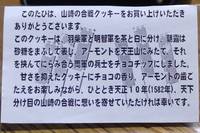 このたびは、山崎の合戦クッキーをお買いいただき
ありがとうございます。
このクッキーは、羽柴軍と明智軍を茶と白に分け、朝露は
砂糖をまぶして表し、アーモンドを天王山にみたて、それ
を挟んでにらみ合う両軍の兵士をチョコチップにしました。
甘さを抑えたクッキーにチョコの香り、アーモンドの歯ご
たえをお楽しみながら、ひととき天正10年(1582年)、天下
分け目の山崎の合戦に想いを寄せていただければ幸いです。